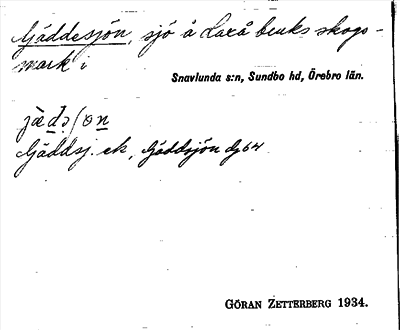 Gäddesjön, sjö å Laxå bruks skogs-
mark i
Snavlunda s:n, Sundbo hd, Örebro län.
Gäddsj. ek, Gäddsjön dj 64
GÖRAN ZETTERBERG 1934.